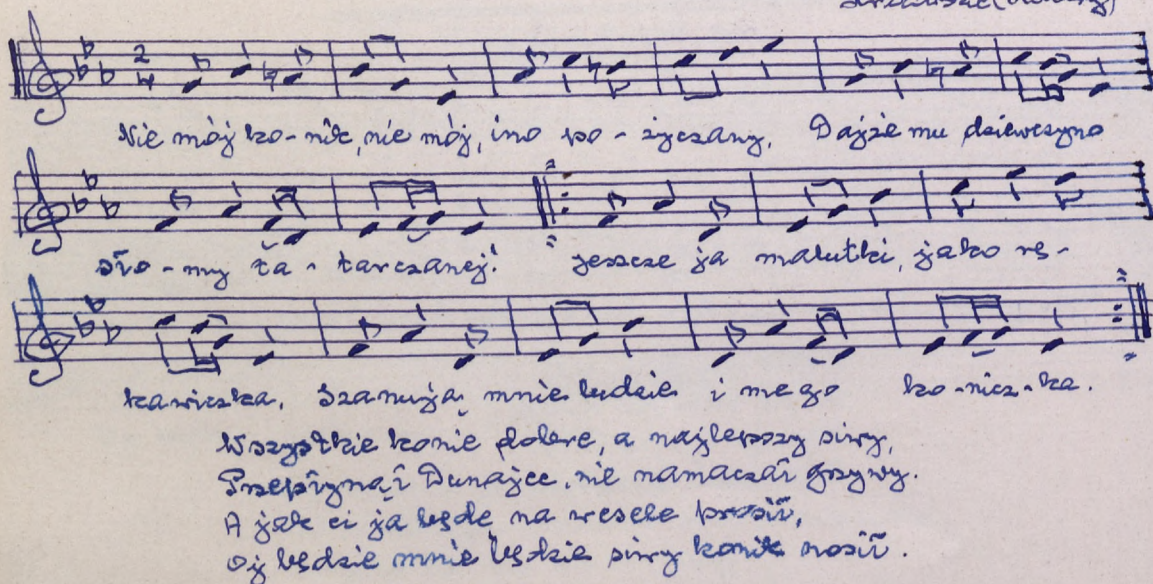 2
4
Nie mój ko-nik, nie mój, ino po-życzany, Dajże mu dziewczyno
sło-my ta-tarczanej! jeszcze ja malutki, jako rę-
kawiczka, Szanują mnie ludzie i mego ko-nicz-ka.
Wszystkie konie dobre, a najlepszy siwy,
Przepłynął Dunajce, nie namaczał grzywy.
A jak ci ja będę na wesele prosił,
Oj będzie mnie będzie siwy konik nosił.